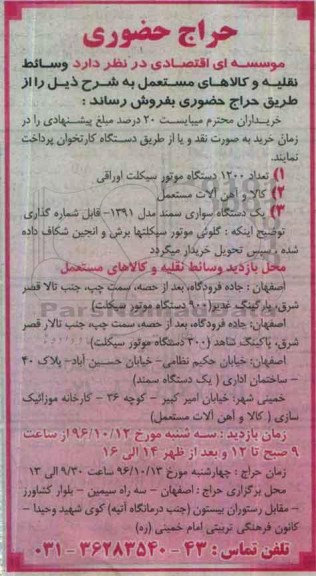 حراج حضوری
موسسه ای اقتصادی در نظر دارد وسائط
نقلیه و کالاهای مستعمل به شرح ذیل را از
طریق حراج حضوری بفروش رساند :
خریداران محترم میبایست ۲۰ درصد مبلغ پیشنهادی را در
زمان خرید به صورت نقد و یا از طریق دستگاه کارتخوان پرداخت
نمایند.
۱) تعداد ۱۲۰۰ دستگاه موتور سیکلت اوراقی
۲) کالا و آهن آلات مستعمل
۳) یک دستگاه سواری سمند مدل ۱۳۹۱- قابل شماره گذاری
توضیح اینکه : گلوئی موتور سیکلتها برش و انجین شکاف داده
شده ، سپس تحویل خریدار میگردد
محل بازدید وسائط نقلیه و کالاهای مستعمل
اصفهان : جاده فرودگاه، بعد از حصه، سمت چپ، جنب تالا قصر
شرق، پارکینگ غدیر(۹۰۰ دستگاه موتور سیکلت)
اصفهان: جاده فرودگاه، بعد از حصه، سمت چپ، جنب تالار قصر
شرق، پاکینگ شاهد (۳۰۰ دستگاه موتور سیکلت)
اصفهان: خیابان حکیم نظامی- خیابان حسین آباد- پلاک ۴۰
– ساختمان اداری ( یک دستگاه سمند)
خمینی شهر: خیابان امیر کبیر – کوچه ۳۶ – کارخانه موزائیک
سازی ( کالا و آهن آلات مستعمل)
زمان بازدید : سه شنبه مورخ ۹۶/۱۰/۱۲ از ساعت
۹ صبح تا ۱۲ و بعد از ظهر ۱۴ الی ۱۶
زمان حراج : چهارشنبه مورخ ۹۶/۱۰/۱۳ ساعت ۹/۳۰ الی ۱۳
محل برگزاری حراج : اصفهان – سه راه سیمین – بلوار کشاورز
– مقابل رستوران بیستون (جنب درمانگاه آتیه) کوی شهید وحیدا –
کانون فرهنگی تربیتی امام خمینی (ره)
تلفن تماس : ۴۳ – ۳۶۲۸۳۵۴۰ – ۰۳۱